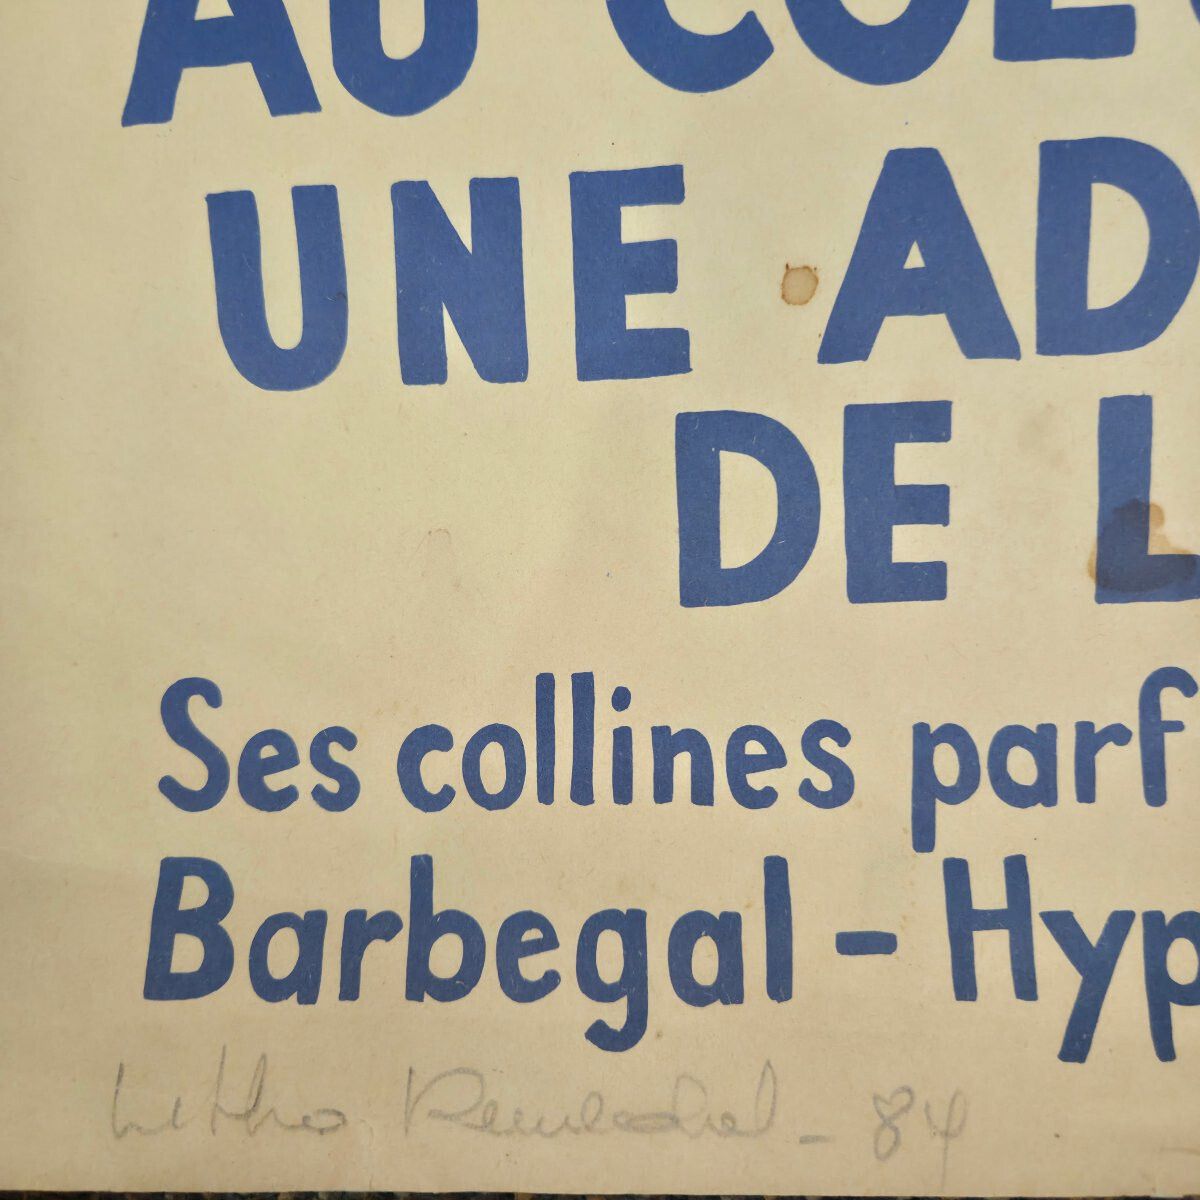 AU COE
UNE AD
DE L
Ses collines parf
Barbegal - Hyp
Litho - 84